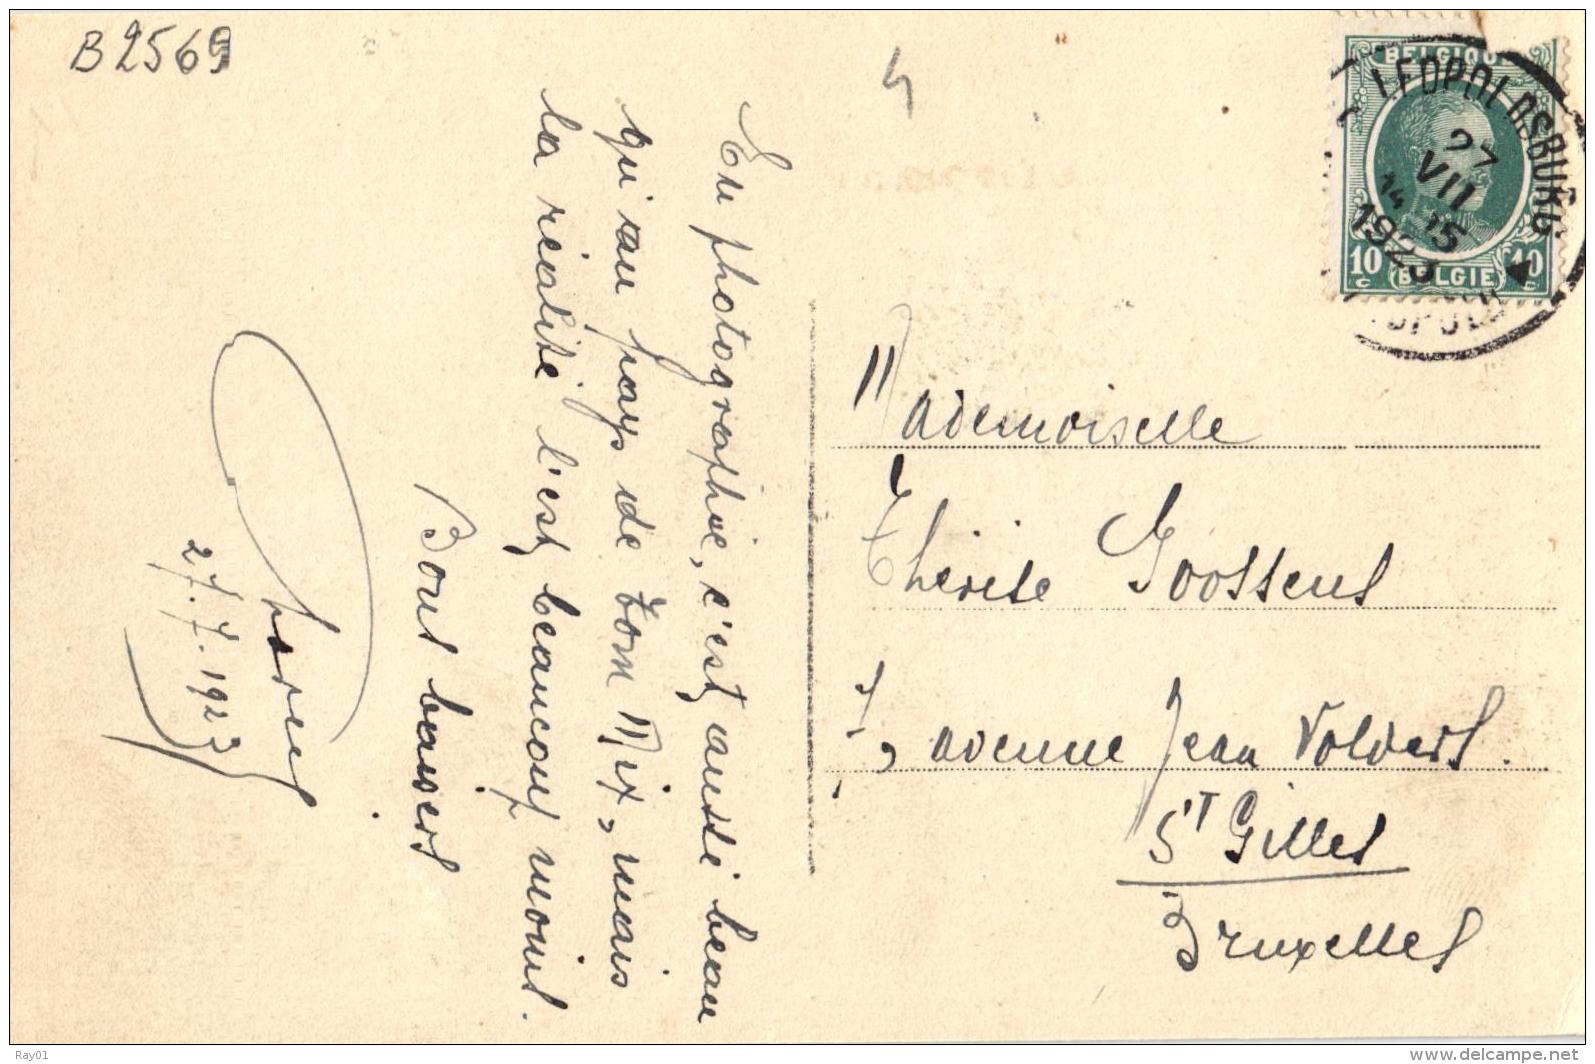 B2569
4
En photographie, c'est aussi beau
qu'au pays de Tom Mix, mais
la réalité l'est beaucoup moins.
Bons baisers
27.7.1923
BELGIQUE
LEOPOLDSBURG
27
VII
14 15
1923
10 10
BELGIE
Mademoiselle
Thérèse Goossens
7, avenue Jean Volders.
ST Gilles
Bruxelles
Ray01
www.delcampe.net